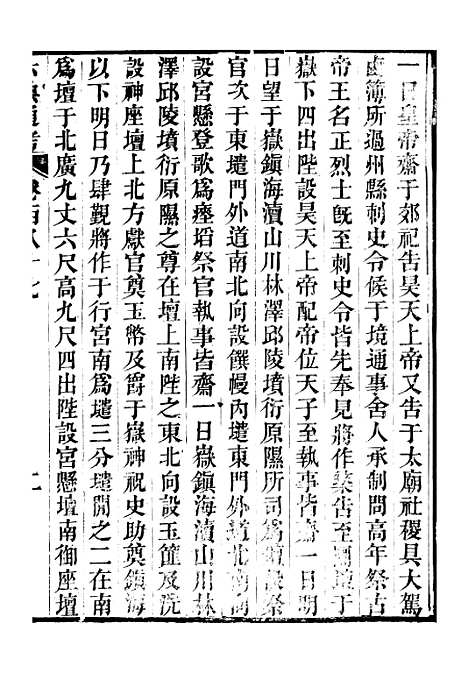 一日皇帝齋于郊祀告昊天上帝又告于太廟社稷具大駕
鹵簿所過州縣刺史令候于境通事舍人承制問高年祭古
帝王名臣烈士旣至刺史令皆先奉見將作築告至圜壇于
嶽下四出陛設昊天上帝配帝位天子至執事皆齋一日明
日望于嶽鎮海瀆山川林澤邱陵墳衍原隰所司爲壇設祭
官次于東壝門外道南北向設饌幔內壝東門外道北南向
設宮懸登歌爲瘞埳祭官執事皆齋一日嶽鎮海瀆山川林
澤邱陵墳衍原隰之尊在壇上南陛之東北向設玉篚及洗
設神座壇上北方獻官奠玉幣及爵于嶽神祝史助奠鎮海
以下明日乃肆覲將作于行宮南爲壝三分壝間之二在南
爲壇于北廣九丈六尺高九尺四出陛設宮懸壇南御座壇
卷百八十七